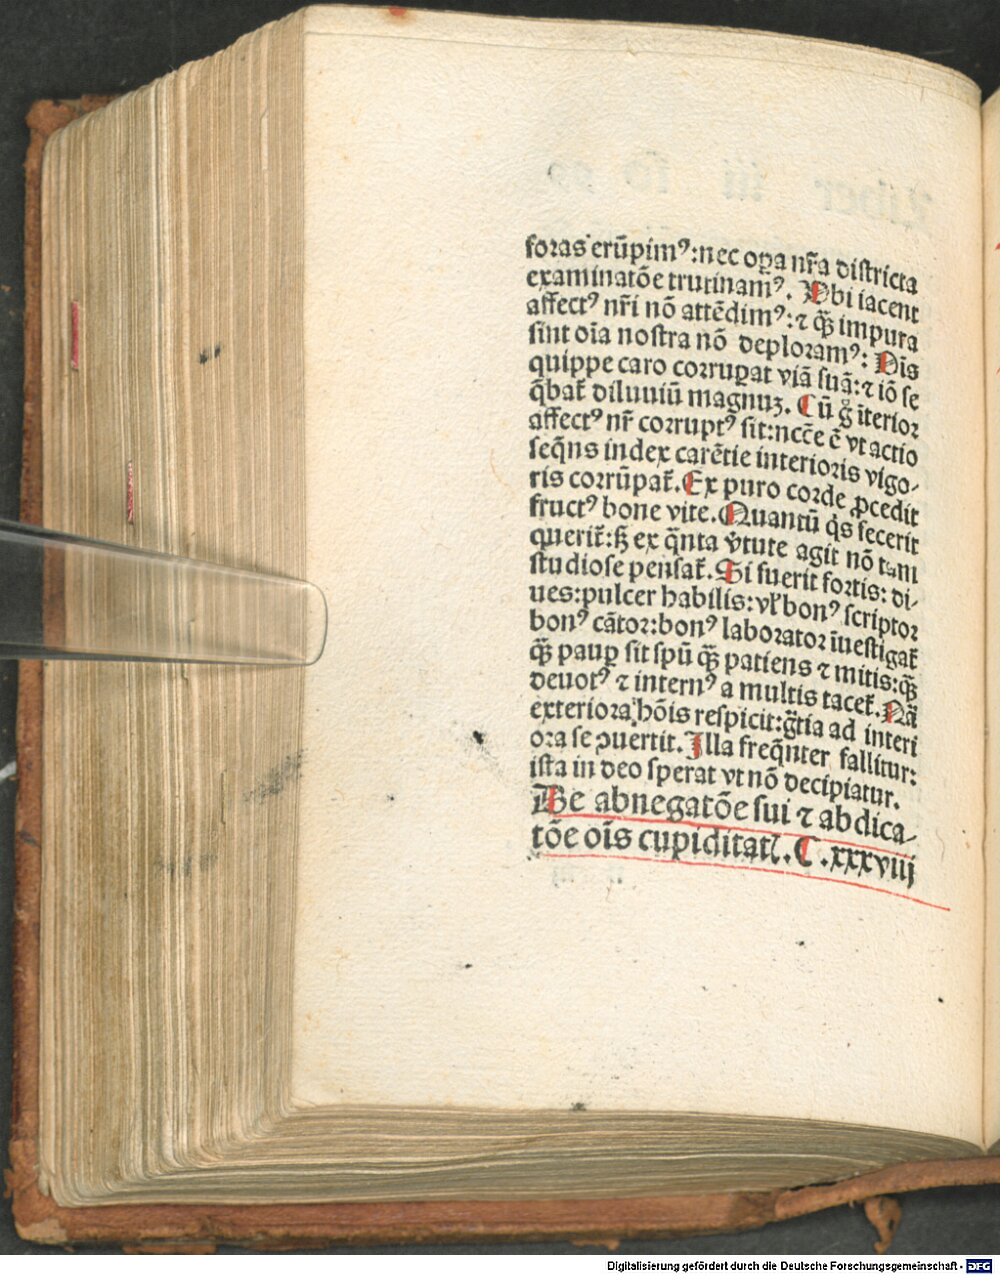 foras erūpimꝰ: nec oꝑa nr̄a districta
examinatōe trutinamꝰ. Ubi iacent
affectꝰ nr̄i nō attēdimꝰ: ⁊ qͣ̈ impura
sint oīa nostra nō deploramꝰ: Oīs
quippe caro corruꝑat viā suā: ⁊ iō se
q̄bat̄ diluuiū magnuꝫ. Cū g̊ īterior
affectꝰ nr̄ corruptꝰ sit: nccē ē vt actio
seq̄ns index carētie interioris vigo-
ris corrūpat̄. Ex puro corde ꝓcedit
fructꝰ bone vite. Quantū qͥs fecerit
querit̄: ꝭ ex q̄nta v̄tute agit nō tam
studiose pensat̄. Si fuerit fortis: di-
ues: pulcer habilis: vl̄ bonꝰ scriptor
bonꝰ cātor: bonꝰ laborator īuestigat̄
qͣ̈ paup̲ sit spū qͣ̈ patiens ⁊ mitis: qͣ̈
deuotꝰ ⁊ internꝰ a multis tacet̄. Nā
exteriora hōis respicit: gr̄tia ad interi
ora se ꝯuertit. Illa freq̄nter fallitur:
ista in deo sperat vt nō decipiatur.
De abnegatōe sui ⁊ abdica-
tōe oīs cupiditatꝭ. C. xxxviij
Digitalisierung gefördert durch die Deutsche Forschungsgemeinschaft - DFG